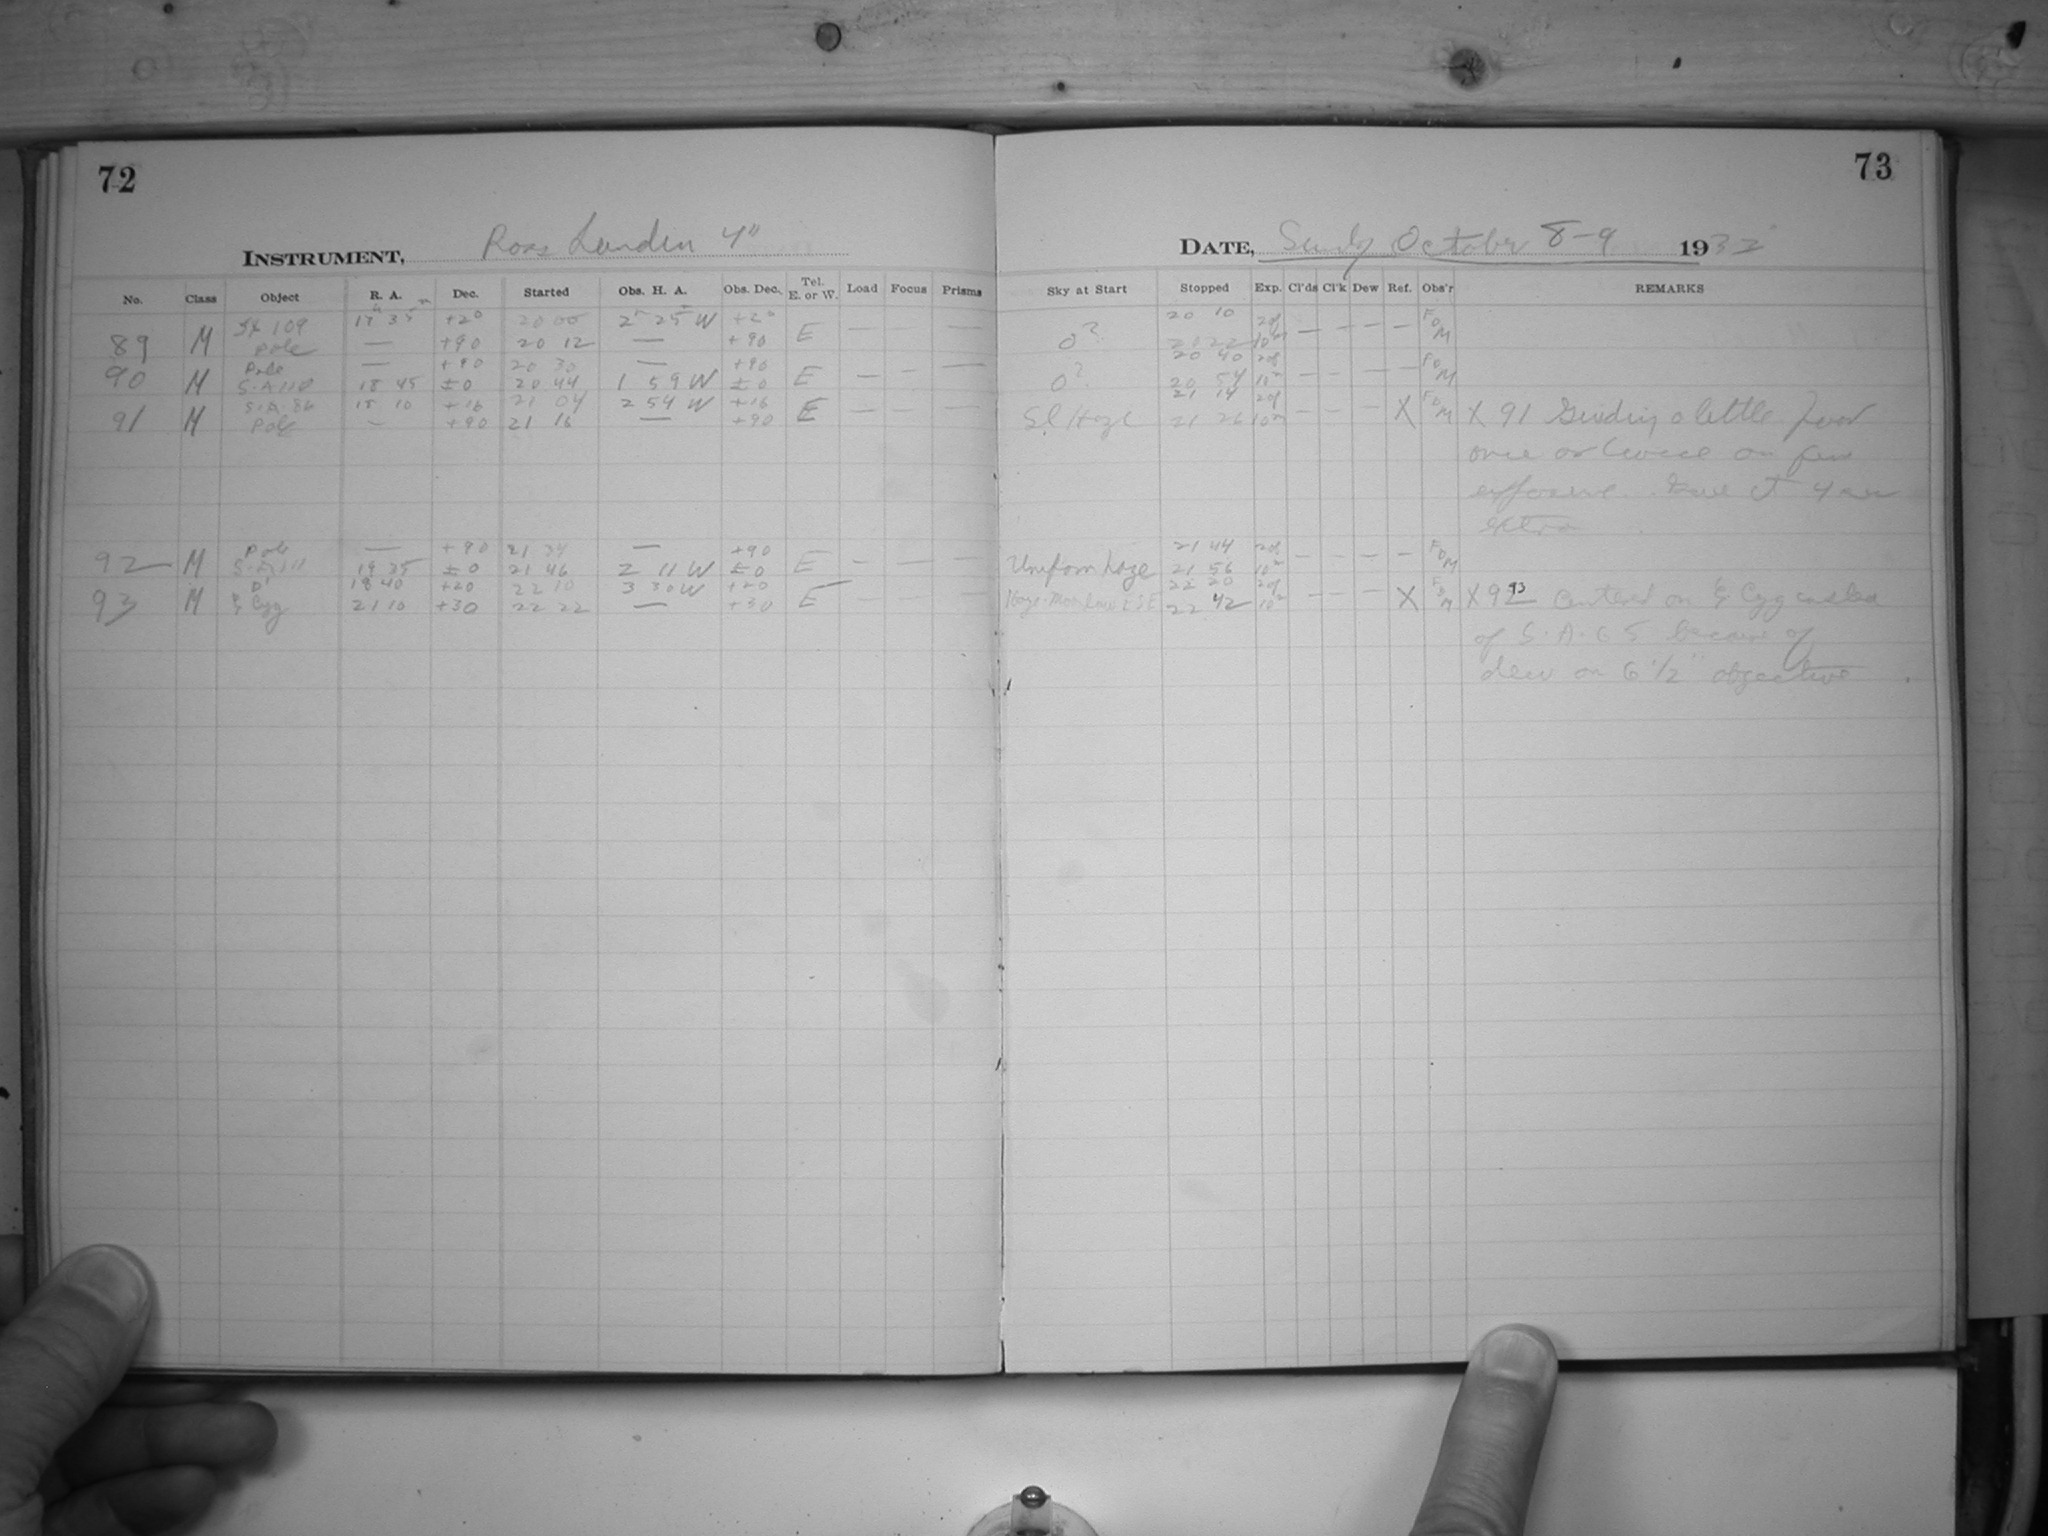 72
INSTRUMENT, Ross Lundin 4"
No. Class Object R. A. Dec. Started Obs. H. A. Obs. Dec. Tel. E. or W. Load Focus Prisms
h m
17 35 +20 20 00 2 25 W +20
89 M Pole — +90 20 12 — +90 E — — —
Pole — +90 20 30 — +90
90 M S.A. 110 18 45 ±0 20 44 1 59 W ±0 E — — —
S.A. 86 18 10 +16 21 04 2 54 W +16
91 M Pole — +90 21 16 — +90 E — — —
Pole — +90 21 34 — +90
92 M S.A. 111 19 35 ±0 21 46 2 11 W ±0 E — — —
18 40 +20 22 10 3 30 W +20
93 M ξ Cyg 21 10 +30 22 22 — +30 E — — —
73
DATE, October 8-9 1932
Sky at Start Stopped Exp. Cl'ds Cl'k Dew Ref. Obs'r REMARKS
20 10
0? 20 22 10m — — — — M
20 40
0? 20 54 10m — — — — M
21 14
Sl Haze 21 26 10m — — — X M X 91 Guiding a little poor
once or twice on
exposure. Gave it 4
extra
21 44
Uniform haze 21 56 10m — — — — M
22 20
Haze. Moon 22 42 10m — — — X M X 93 Centered on ξ Cyg instead
of S.A. 65 because of
dew on 6 1/2" objective